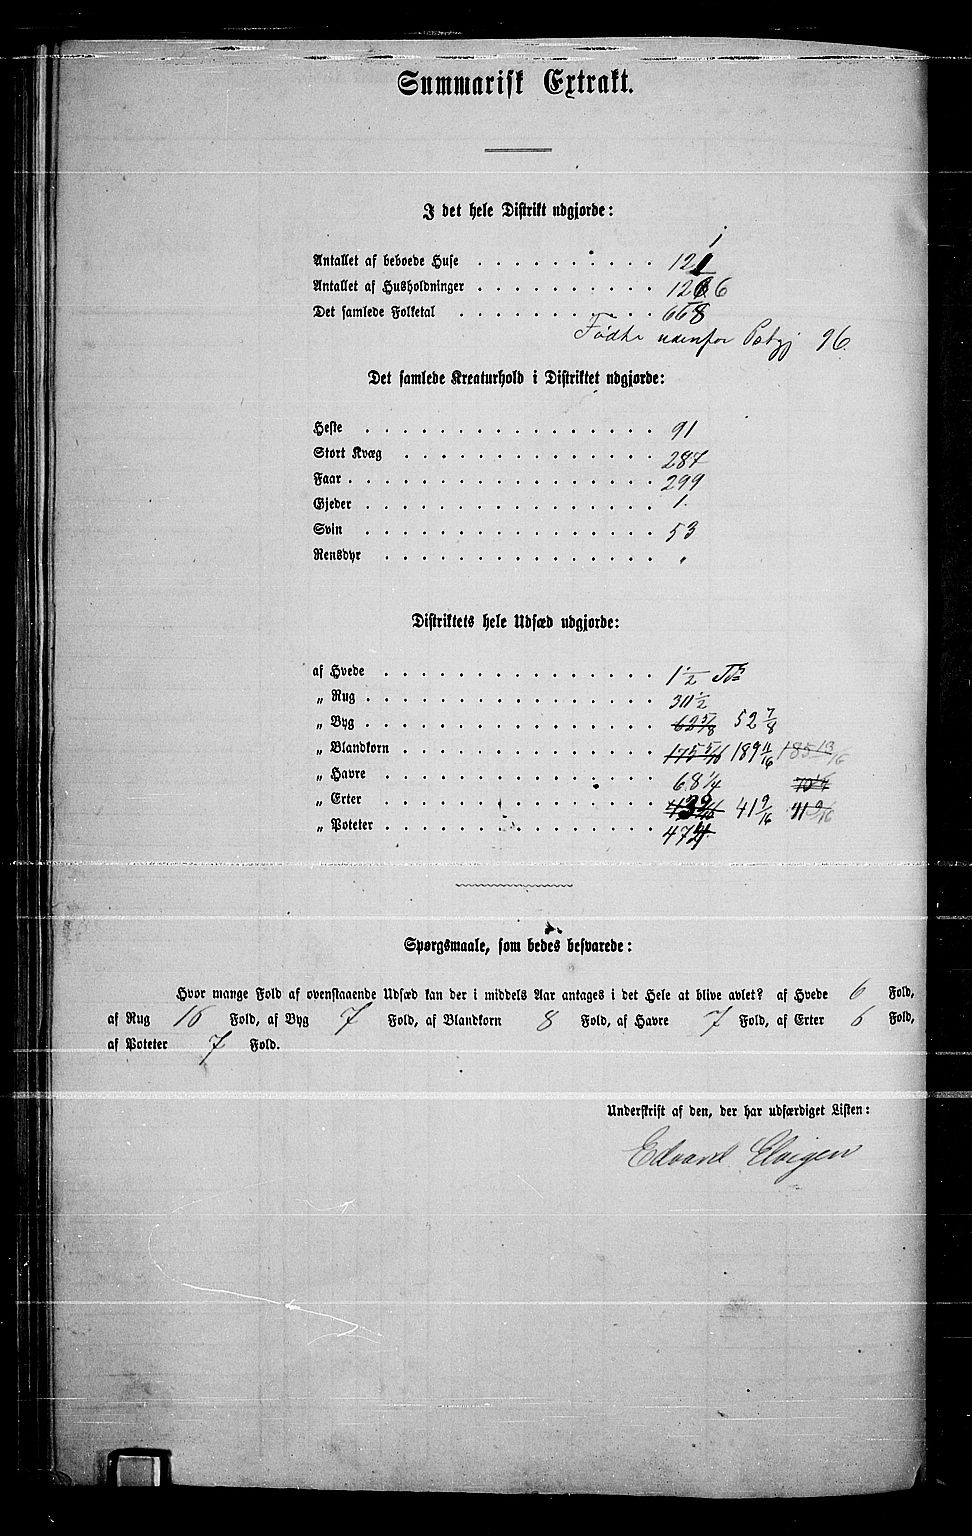 Summarisk Extrakt.
I det hele Distrikt udgjorde:
1
Antallet af beboede Huse . . . . . . . . 121
Antallet af Husholdninger . . . . . . . . 126
Det samlede Folketal . . . . . . . . 668
Fødte udenfor 96.
Det samlede Kreaturhold i Distriktet udgjorde:
Heste . . . . . . . . 91
Stort Kvæg . . . . . . . . 287
Faar . . . . . . . . 299
Gjeder . . . . . . . . 1.
Svin . . . . . . . . 53
Rensdyr . . . . . . . . "
Distriktets hele Udsæd udgjorde:
af Hvede . . . . . . . . 1 1/2
„ Rug . . . . . . . . 30 1/2
„ Byg . . . . . . . . 62 5/8 52 7/8
„ Blandkorn . . . . . . . . 175 5/16 189 11/16 185 13/16
„ Havre . . . . . . . . 68 1/4
„ Erter . . . . . . . . 41 9/16 41 9/16
„ Poteter . . . . . . . . 474
Spørgsmaale, som bedes besvarede:
Hvor mange Fold af ovenstaaende Udsæd kan der i middels Aar antages i det Hele at blive avlet? af Hvede 6 Fold,
af Rug 16 Fold, af Byg 7 Fold, af Blandkorn 8 Fold, af Havre 7 Fold, af Erter 6 Fold,
af Poteter 7 Fold.
Underskrift af den, der har udfærdiget Listen:
Edvard Elvigen